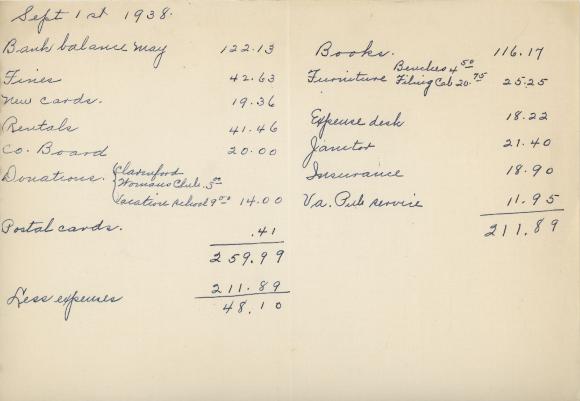 Sept 1st 1938.
Bank balance May 122.13
Fines 42.63
New cards. 19.36
Rentals 41.46
Co. Board 20.00
Donations. { Clarenford
Womans Club. 5.00
Vacation school 9.00 14.00
Postal cards. .41
259.99
Less expenses 211.89
48.10
Books. 116.17
Benches 4.50
Furniture Filing Cab 20.75 25.25
Expense desk 18.22
Janitor 21.40
Insurance 18.90
Va. Pub service 11.95
211.89